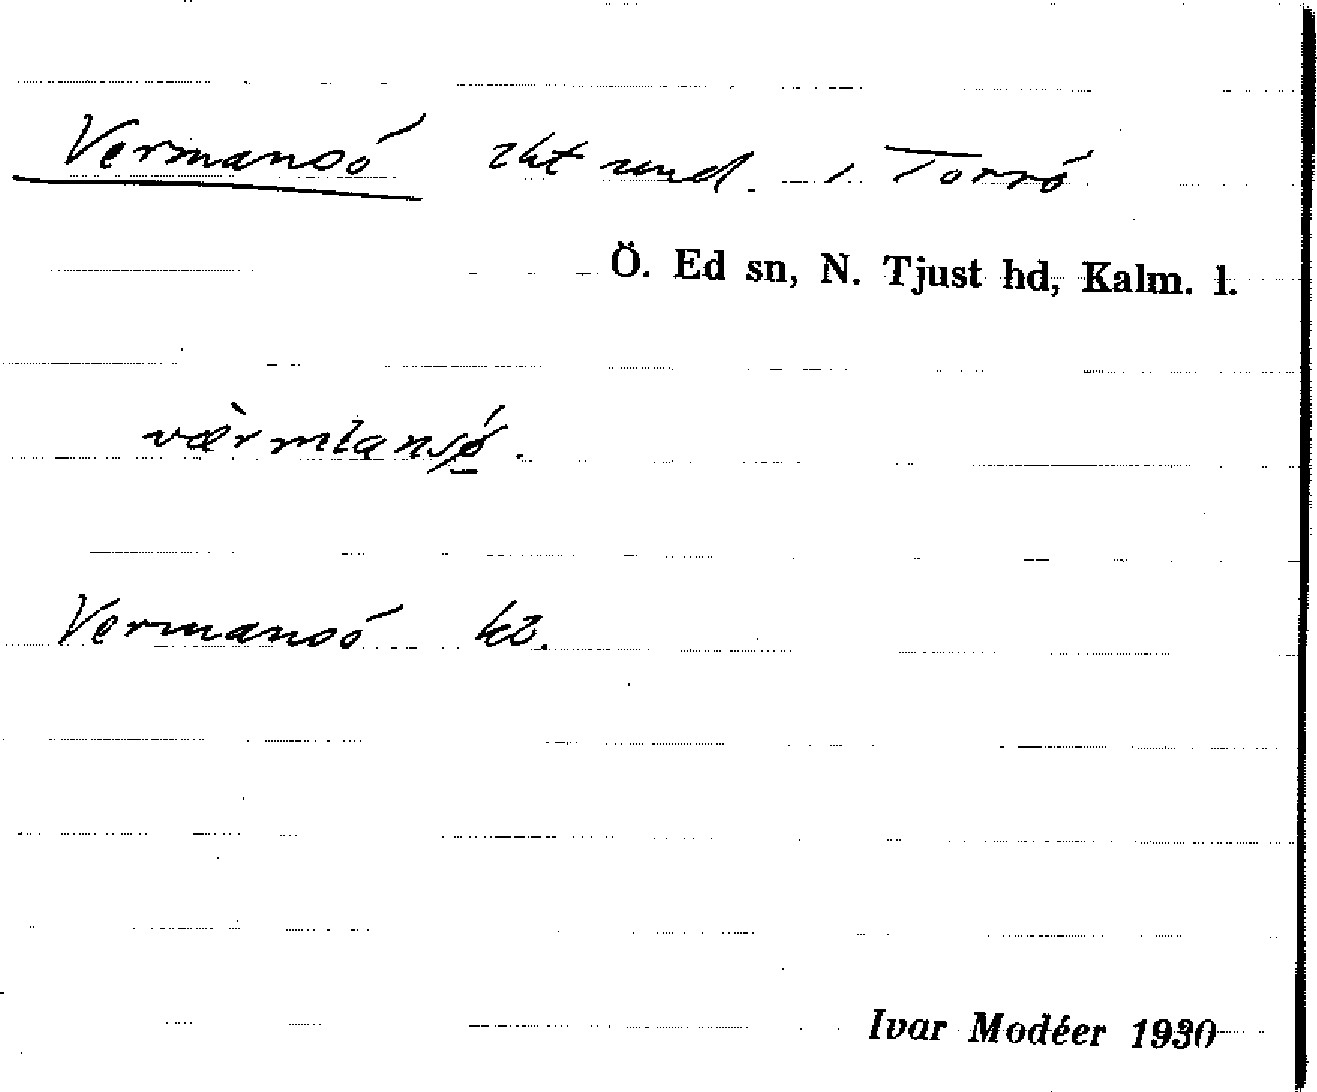 Vermansö lht und. i Torrö
Ö. Ed sn, N. Tjust hd, Kalm. l.
værmlansø.
Vermansö kz.
Ivar Modéer 1930